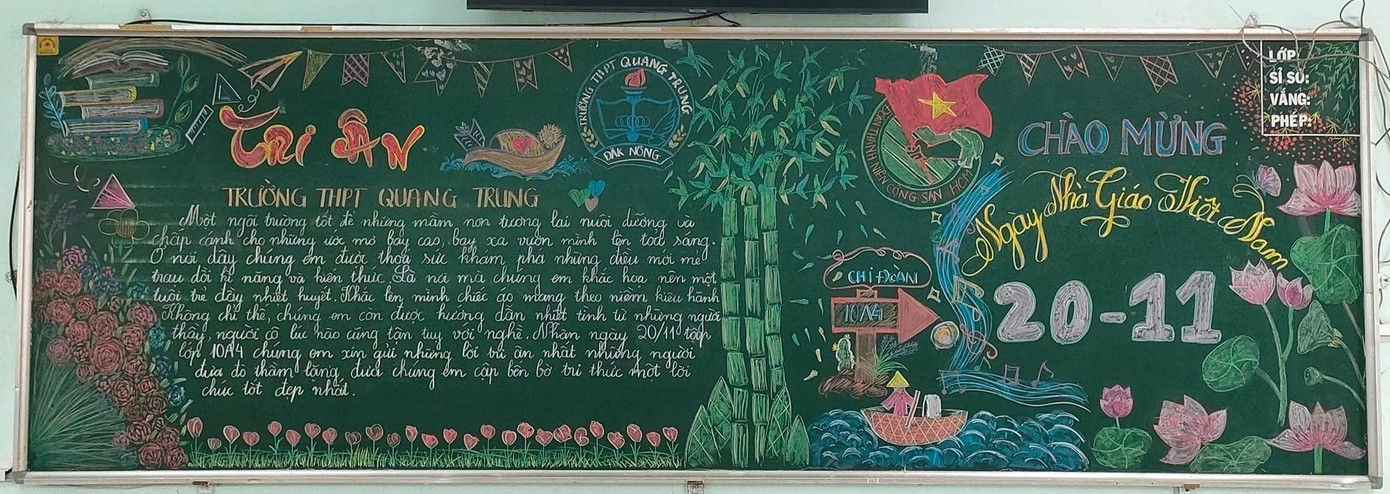 Tri Ân
TRƯỜNG THPT QUANG TRUNG
ĐĂK NÔNG
TRƯỜNG THPT QUANG TRUNG
Một ngôi trường tốt để những mầm non tương lai nuôi dưỡng và
chấp cánh cho những ước mơ bay cao, bay xa vươn mình lên toả sáng.
Ở nơi đây chúng em được thoả sức khám phá những điều mới mẻ
trau dồi kĩ năng và kiến thức. Là nơi mà chúng em khắc hoạ nên một
tuổi trẻ đầy nhiệt huyết. Khắc lên mình chiếc áo mang theo niềm kiêu hãnh
Không chỉ thế, chúng em còn được hướng dẫn nhiệt tình từ những người
thầy, người cô lúc nào cũng tận tuỵ với nghề. Nhân ngày 20/11 tập
lớp 10A4 chúng em xin gửi những lời tri ân nhất những người
đưa đò thầm lặng, đưa chúng em cập bến bờ tri thức một lời
chúc tốt đẹp nhất.
ĐOÀN THANH NIÊN CỘNG SẢN HCM
CHI ĐOÀN
10A4
CHÀO MỪNG
Ngày Nhà Giáo Việt Nam
20-11
LỚP:
SĨ SỐ:
VẮNG:
PHÉP: